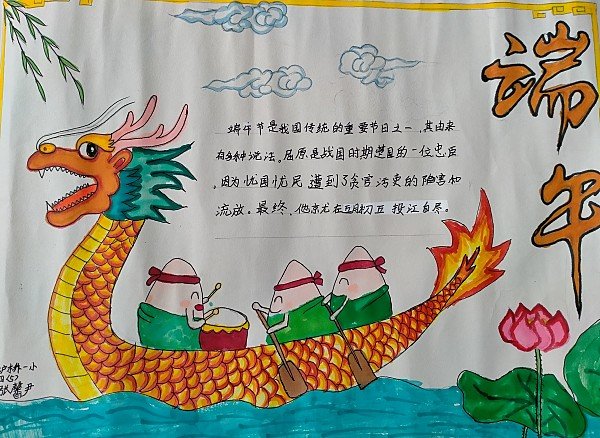 端午
端午节是我国传统的重要节日之一，其由来
有多种说法。屈原是战国时期楚国的一位忠臣
，因为忧国忧民遭到了贪官污吏的陷害和
流放。最终，他就在五月初五投江自尽。
一小